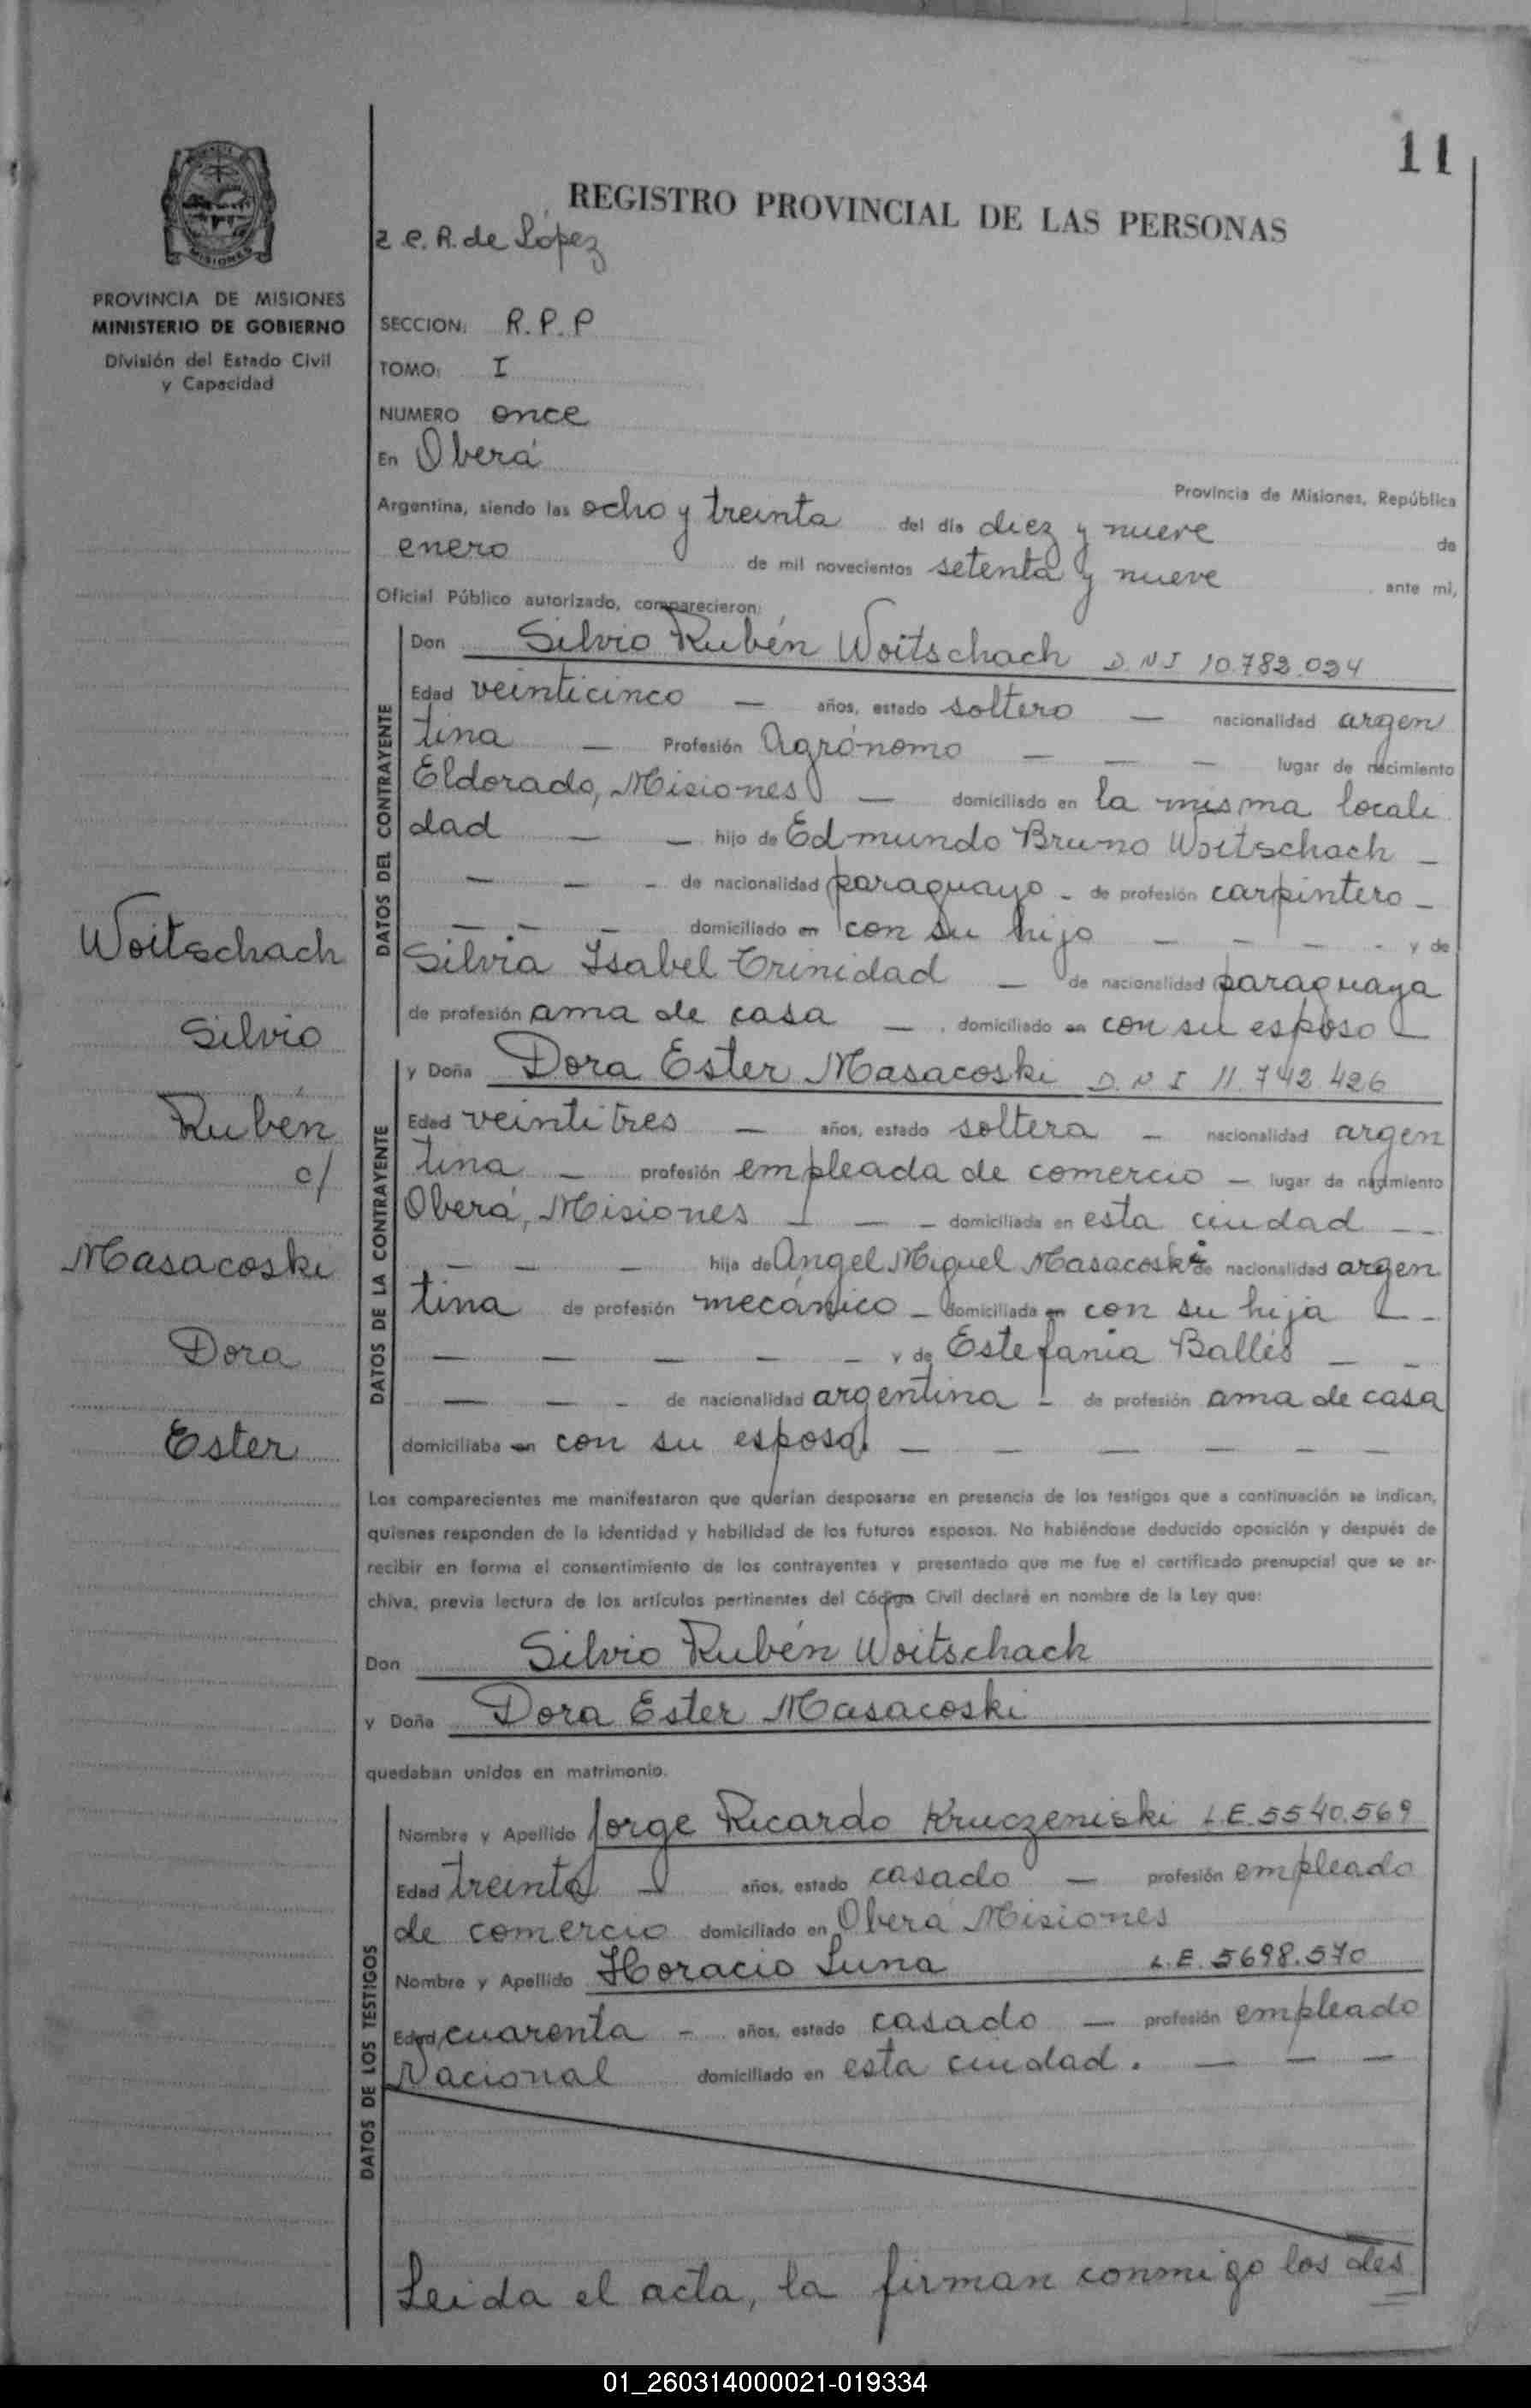 11
REGISTRO PROVINCIAL DE LAS PERSONAS
Z C. R. de López
PROVINCIA DE MISIONES
MINISTERIO DE GOBIERNO
División del Estado Civil
y Capacidad
SECCION: R.P.P
TOMO: I
NUMERO once
En Oberá
Provincia de Misiones, República
Argentina, siendo las ocho y treinta del día diez y nueve de
enero de mil novecientos setenta y nueve ante mi,
Oficial Público autorizado, comparecieron:
DATOS DEL CONTRAYENTE
Don Silvio Rubén Woitschach D.N.I 10.782.024
Edad veinticinco — años, estado soltero — nacionalidad argen
tina — Profesión Agrónomo — — — lugar de nacimiento
Eldorado, Misiones — domiciliado en la misma locali
dad — — hijo de Edmundo Bruno Woitschach —
— — - de nacionalidad paraguayo - de profesión carpintero -
— — — domiciliado en con su hijo — - — - y de
Silvia Isabel Trinidad — de nacionalidad paraguaya
de profesión ama de casa — . domiciliado en con su esposo —
Woitschach
Silvio
Rubén
c/
Masacoski
Dora
Ester
DATOS DE LA CONTRAYENTE
y Doña Dora Ester Masacoski D.N.I 11.742.426
Edad veintitres — años, estado soltera — nacionalidad argen
tina — profesión empleada de comercio — lugar de nacimiento
Oberá, Misiones — — - domiciliada en esta ciudad — -
— — — hija de Angel Miguel Masacoski de nacionalidad argen
tina de profesión mecánico - domiciliada en con su hija — -
— — — — — y de Estefania Ballés — -
— — - de nacionalidad argentina - de profesión ama de casa
domiciliaba en con su esposo. — — — — — —
Los comparecientes me manifestaron que querían desposarse en presencia de los testigos que a continuación se indican,
quienes responden de la identidad y habilidad de los futuros esposos. No habiéndose deducido oposición y después de
recibir en forma el consentimiento de los contrayentes y presentado que me fue el certificado prenupcial que se ar-
chiva, previa lectura de los artículos pertinentes del Código Civil declaré en nombre de la Ley que:
Don Silvio Rubén Woitschach
y Doña Dora Ester Masacoski
quedaban unidos en matrimonio.
DATOS DE LOS TESTIGOS
Nombre y Apellido Jorge Ricardo Kruczeniski L.E. 5540.569
Edad treinta — años, estado casado — profesión empleado
de comercio domiciliado en Oberá Misiones
Nombre y Apellido Horacio Luna L.E. 5698.570
Edad cuarenta - años, estado casado — profesión empleado
Nacional domiciliado en esta ciudad. — — —
Leida el acta, la firman conmigo los des
01_260314000021-019334